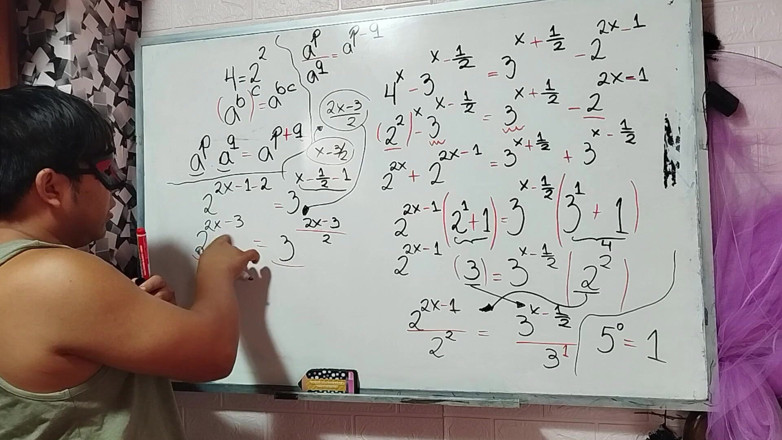 4 = 2²
(a^b)^c = a^(bc)
a^p a^q = a^(p+q)
a^p/a^q = a^(p-q)
(2x-3)/2
x-3/2
2^(2x-1-2) = 3^(x-1/2-1)
2^(2x-3) = 3^((2x-3)/2)
4^x - 3^(x-1/2) = 3^(x+1/2) - 2^(2x-1)
(2²)^x - 3^(x-1/2) = 3^(x+1/2) - 2^(2x-1)
2^(2x) + 2^(2x-1) = 3^(x+1/2) + 3^(x-1/2)
2^(2x-1) (2¹ + 1) = 3^(x-1/2) (3¹ + 1)
4
2^(2x-1) (3) = 3^(x-1/2) (2²)
2^(2x-1)/2² = 3^(x-1/2)/3¹
5° = 1